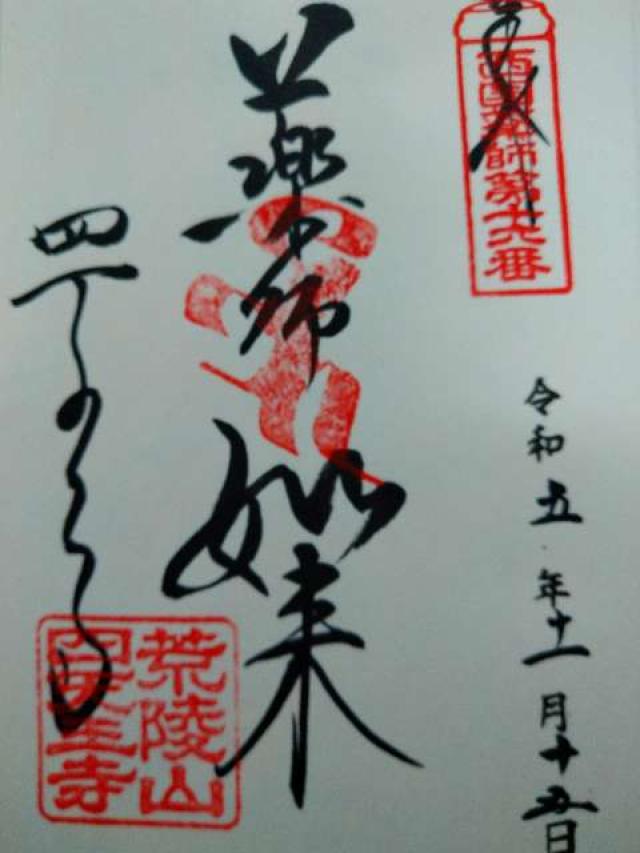 西国薬師第十六番
令和五年十一月十五日
薬師如来
四天王寺
荒陵山
四天王寺